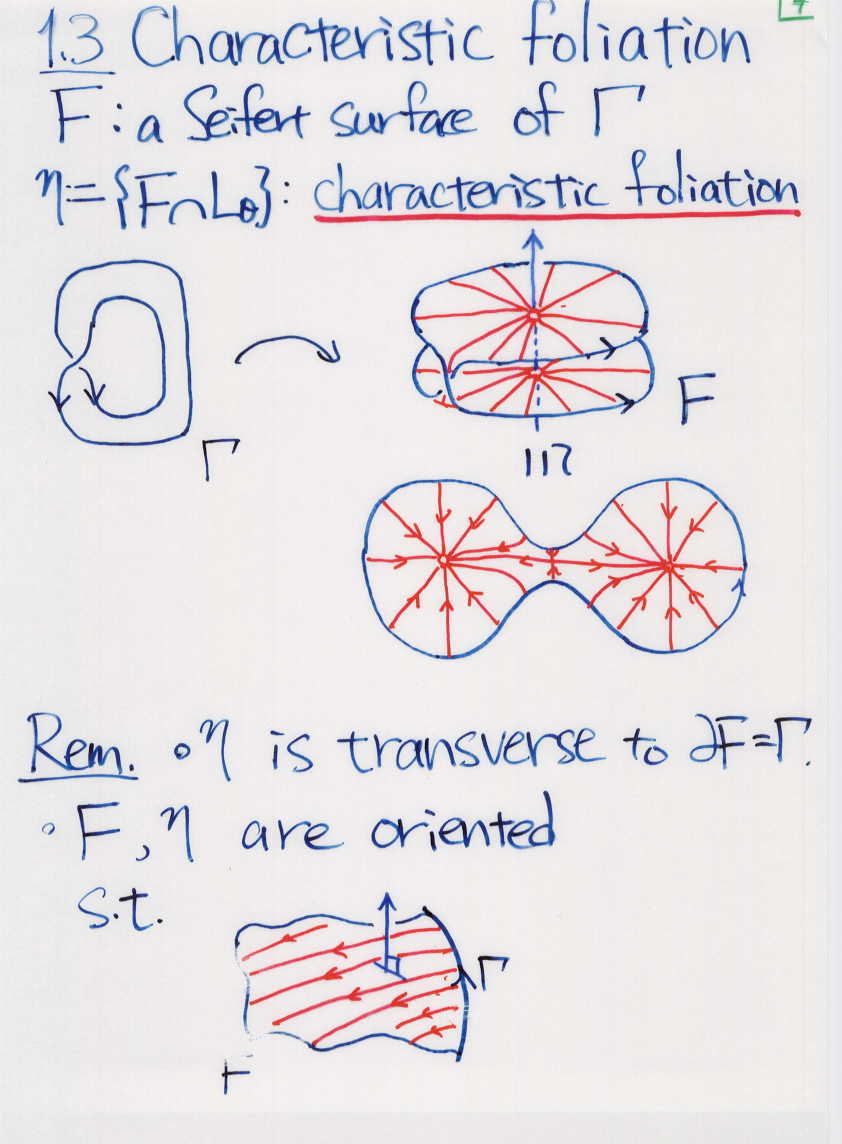 1.3 Characteristic foliation
F : a Seifert surface of Γ
η = {F∩Lθ} : characteristic foliation
Γ
F
Rem. ∘ η is transverse to ∂F=Γ.
∘ F, η are oriented
s.t.
Γ
F